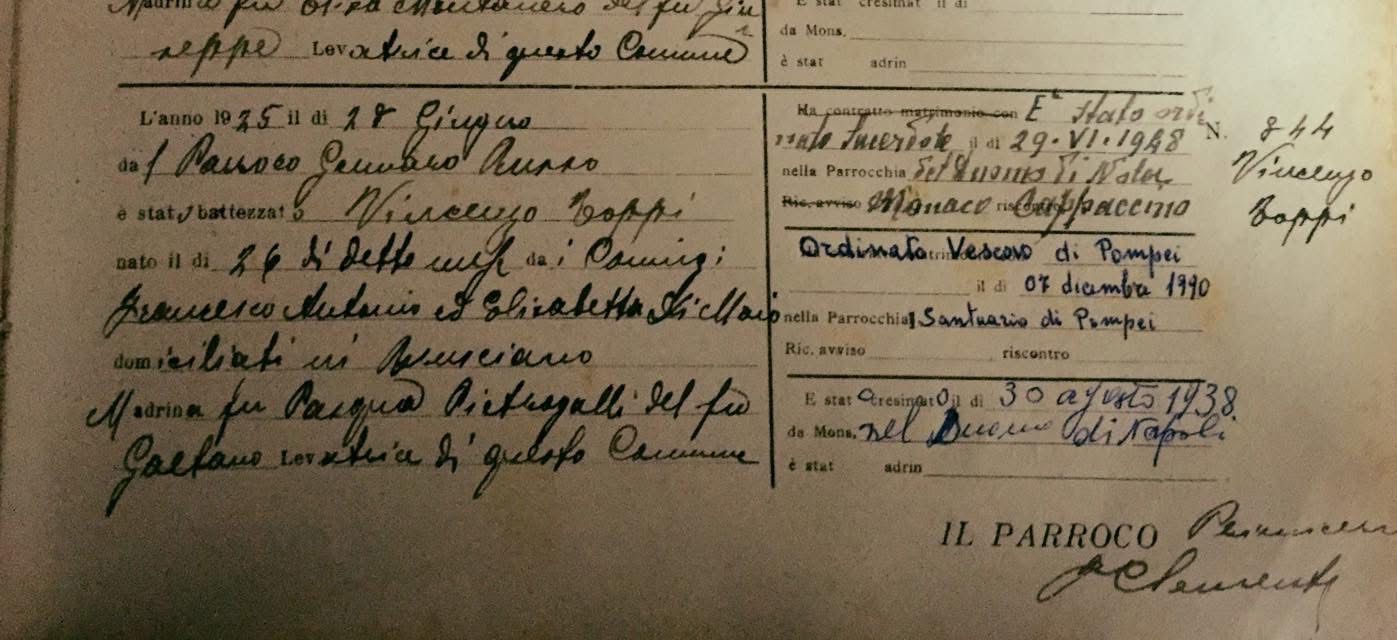 Madrina fu Elisa Montanero del fu Giu
seppe Levatrice di questo Comune
L'anno 1925 il di 28 Giugno
dal Parroco Gennaro Russo
è stato battezzato Vincenzo Toppi
nato il di 26 di detto mese da i Coniugi
Francesco Antonio ed Elisabetta Di Maio
domiciliati in Brusciano
Madrina fu Pasqua Pietrogalli del fu
Gaetano Levatrice di questo Comune
E stat cresimat il di
da Mons.
è stat adrin
Ha contratto matrimonio con E' stato ordi
nato Sacerdote il di 29.VI.1948
nella Parrocchia del Duomo di Nola
Ric. avviso Monaco riscontro Cappuccino
Ordinato Vescovo di Pompei
il di 07 dicembre 1990
nella Parrocchia Santuario di Pompei
Ric. avviso riscontro
E stato cresimato il di 30 agosto 1938.
da Mons. nel Duomo di Napoli
è stat adrin
N. 844
Vincenzo
Toppi
IL PARROCO
Clemente